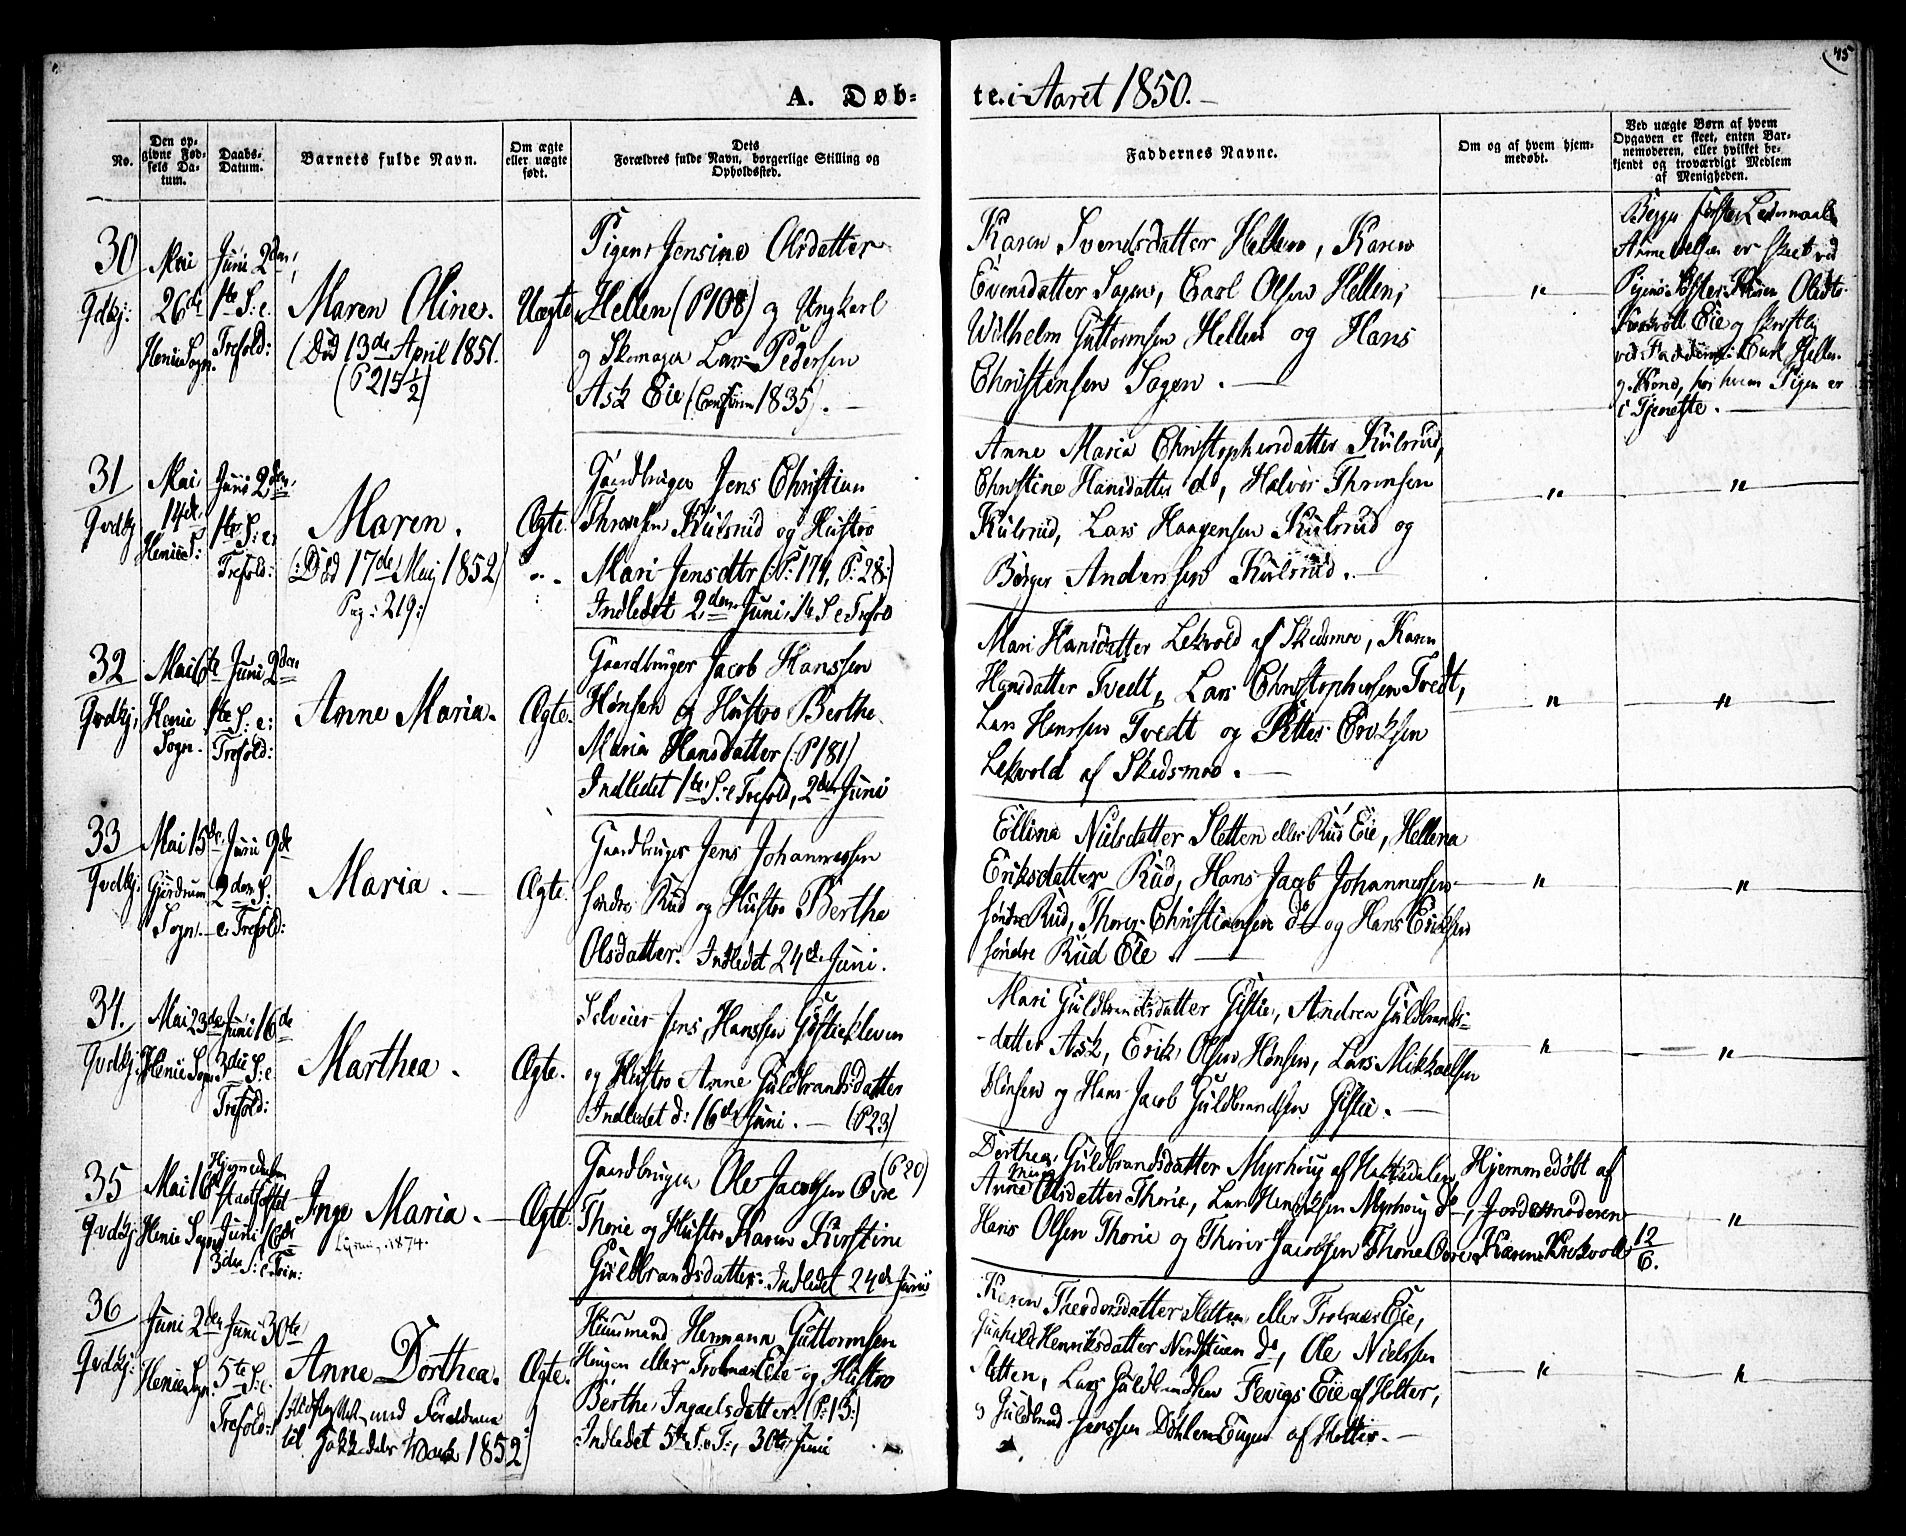 45
A. Døb-
te i Aaret 1850.
No.
Den op-
givne Fød-
sels Da-
tum.
Daabs-
Datum.
Barnets fulde Navn.
Om ægte
eller uægte
født.
Dets
Forældres fulde Navn, borgerlige Stilling og
Opholdssted.
Faddernes Navne.
Om og af hvem hjem-
medøbt.
Ved uægte Børn af hvem
Opgaven er skeet, enten Bar-
nemoderen, eller hvilket be-
kjendt og troværdigt Medlem
af Menigheden.
30
Mai
26de
Henie Sogn.
Juni 2den,
1ste S: e.
Trefold:
Maren Oline.
(Død 13de April 1851.
(P 215½)
Uægte
Pigen Jensine Olsdatter
Hellen (P 108) og Ungkarl
og Skomager Lars Pedersen
Ask Eie (Confirm 1835). —
Karen Svendsdatter Hellen, Karen
Evensdatter Sogen, Carl Olsen Hellen,
Wilhelm Guttormsen Hellen og Hans
Christensen Sogen. —
"
Begges første Leiermaal
Anmeldelsen er skeet ved
og Kone, hos hvem Pigen er
i Tjeneste. —
31
Mai
14de
Henie S:
Juni 2den,
1ste S: e:
Trefold:
Maren.
(:Død 17de Mai 1852)
Pag: 219:)
Ægte.
Gaardbruger Jens Christian
Thronsen Kulsrud og Hustro
Mari Jensdtr (:P: 174, P: 28:)
Indledet 2den Juni, 1ste S. e Trefo
Anne Maria Christophersdatter Kulsrud,
Christine Hansdatter do, Halvor Thronsen
Kulsrud, Lars Haagensen Kulsrud og
Børger Andersen Kulsrud. —
"
"
32
Mai 6te
Henie
Sogn.
Juni 2den
1ste S: e:
Trefold:
Anne Maria.
Ægte.
Gaardbruger Jacob Hanssen
Hønsen og Hustro Berthe
Maria Hansdatter (:P 181)
Indledet 1ste S. e Trefold, 2den Juni
Mari Hansdatter Lekvold af Skedsmoe, Karen
Hansdatter Tvedt, Lars Christophersen Tvedt,
Lars Hanssen Tvedt og Petter Eriksen
Lekvold af Skedsmoe. —
"
"
33
Mai 15de
Gjerdrum
Sogn.
Juni 9de
2den S:
e. Trefold:
Maria. —
Ægte.
Gaardbruger Jens Johannessen
søndre Rud og Hustro Berthe
Olsdatter. Indledet 24de Juni.
Ellina Nielsdatter Sletten eller Rud Eie, Hellena
Eriksdatter Rud, Hans Jacob Johannessen
søndre Rud, Thorer Christiansen do og Hans Eriksen
søndre Rud Eie. —
"
"
34.
Mai 23de
Henie Sogn
Juni 16de
3die S: e
Trefold:
Marthea.
Ægte.
Selveier Jens Hanssen Gistiekleven
og Hustro Anne Guldbrandsdatter
Indledet d: 16de Juni. — (P23)
Mari Guldbrandsdatter Gistie, Andrea Guldbrands-
datter Ask, Erik Olsen Hønsen, Lars Mikkaelsen
Hønsen og Hans Jacob Guldbrandsen Gistie. —
"
"
35
Mai 16
Henie Sogn
Hjemmedaaben
stadfæstet
Juni 16de
3die S: e. Trin:
Inge Maria. —
1874.
Ægte.
(P 20)
Gaardbruger Ole Jacobsen Øvre
Thorie og Hustro Karen Kirstine
Guldbrandsdatter. Indledet 24de Juni
Dorthea Guldbrandsdatter Myrhoug af Hakedalen,
Anne Olsdatter Thorie, Lars Henriksen Myrhoug do,
Hans Olsen Thorie og Thorer Jacobsen Thorie Øvre
Hjemmedøbt af
Jordemoderen
Karen Krokvold 12/6.
"
36
Juni 2den
Henie Sogn:
Juni 30te
5te S: e.
Trefold:
Anne Dorthea.
til Hakkedals Værk 1852)
Ægte.
Huusmand Hermann Guttormsen
Haugen eller Eie og Hustro
Berthe Ingaelsdatter (P: 13:)
Indledet 5te S. e T:, 30te Juni
Karen Theodorsdatter Sletten eller Eie,
Gunhild Henriksdatter Nordstuen do, Ole Nielssen
Sletten, Lars Guldbrandsen Eie af Holter,
og Guldbrand Jenssen Døhlen Eugen af Holter. —
"
"